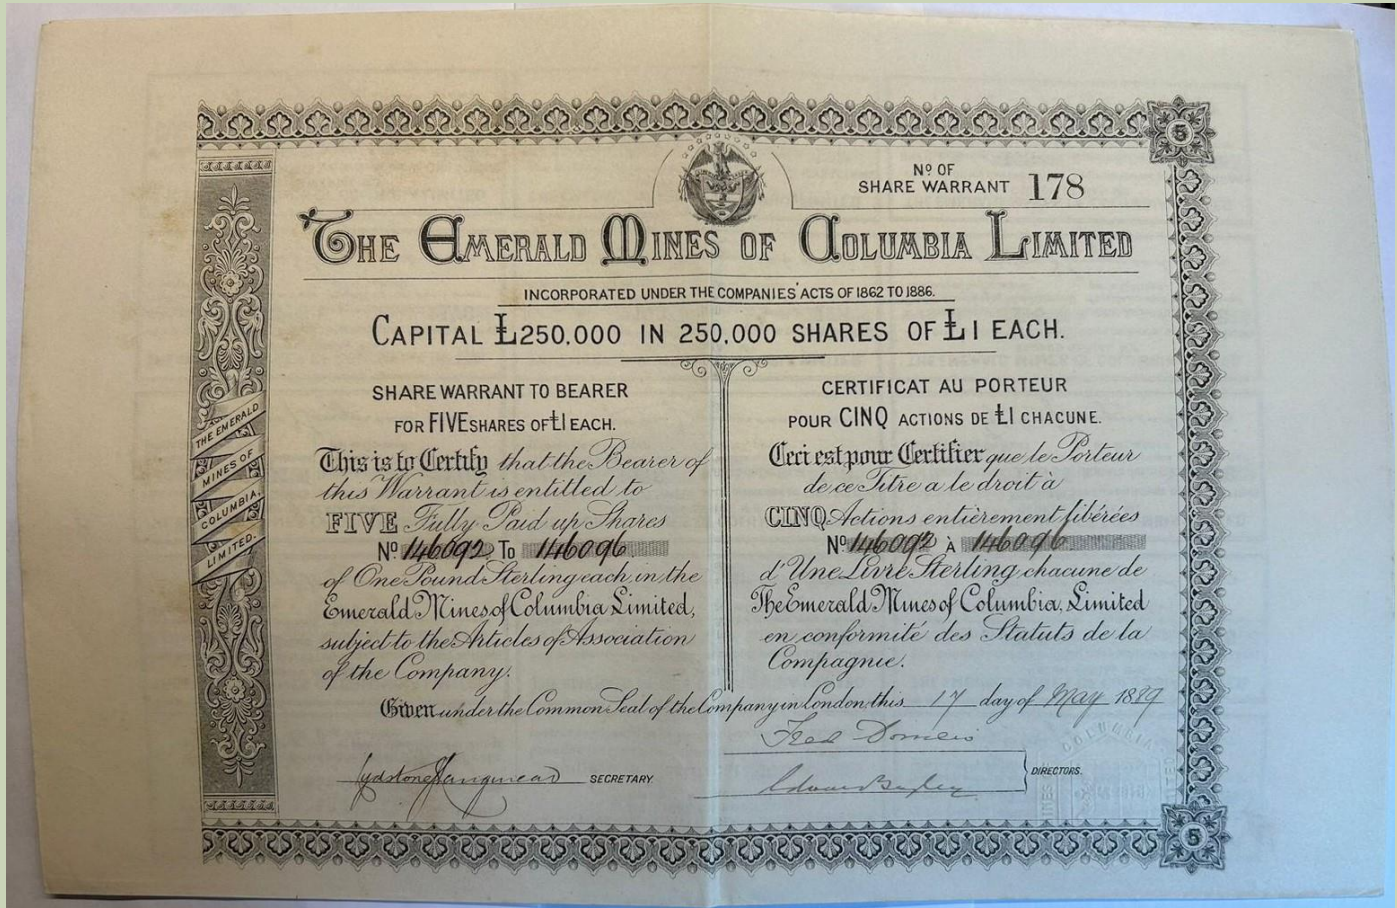 Nº OF
SHARE WARRANT 178
THE EMERALD MINES OF COLUMBIA LIMITED
INCORPORATED UNDER THE COMPANIES' ACTS OF 1862 TO 1886.
CAPITAL £250,000 IN 250,000 SHARES OF £1 EACH.
SHARE WARRANT TO BEARER
FOR FIVE SHARES OF £1 EACH.
This is to Certify that the Bearer of
this Warrant is entitled to
FIVE Fully Paid up Shares
Nº 146092 To 146096
of One Pound Sterling each in the
Emerald Mines of Columbia Limited,
subject to the Articles of Association
of the Company.
CERTIFICAT AU PORTEUR
POUR CINQ ACTIONS DE £1 CHACUNE.
Ceci est pour Certifier que le Porteur
de ce Titre a le droit à
CINQ Actions entièrement libérées
Nº 146092 À 146096
d'Une Livre Sterling chacune de
The Emerald Mines of Columbia, Limited
en conformité des Statuts de la
Compagnie.
Given under the Common Seal of the Company in London this 17 day of May 1889
SECRETARY.
DIRECTORS.
THE EMERALD
MINES OF
COLUMBIA,
LIMITED.
5
5
COLUMBIA